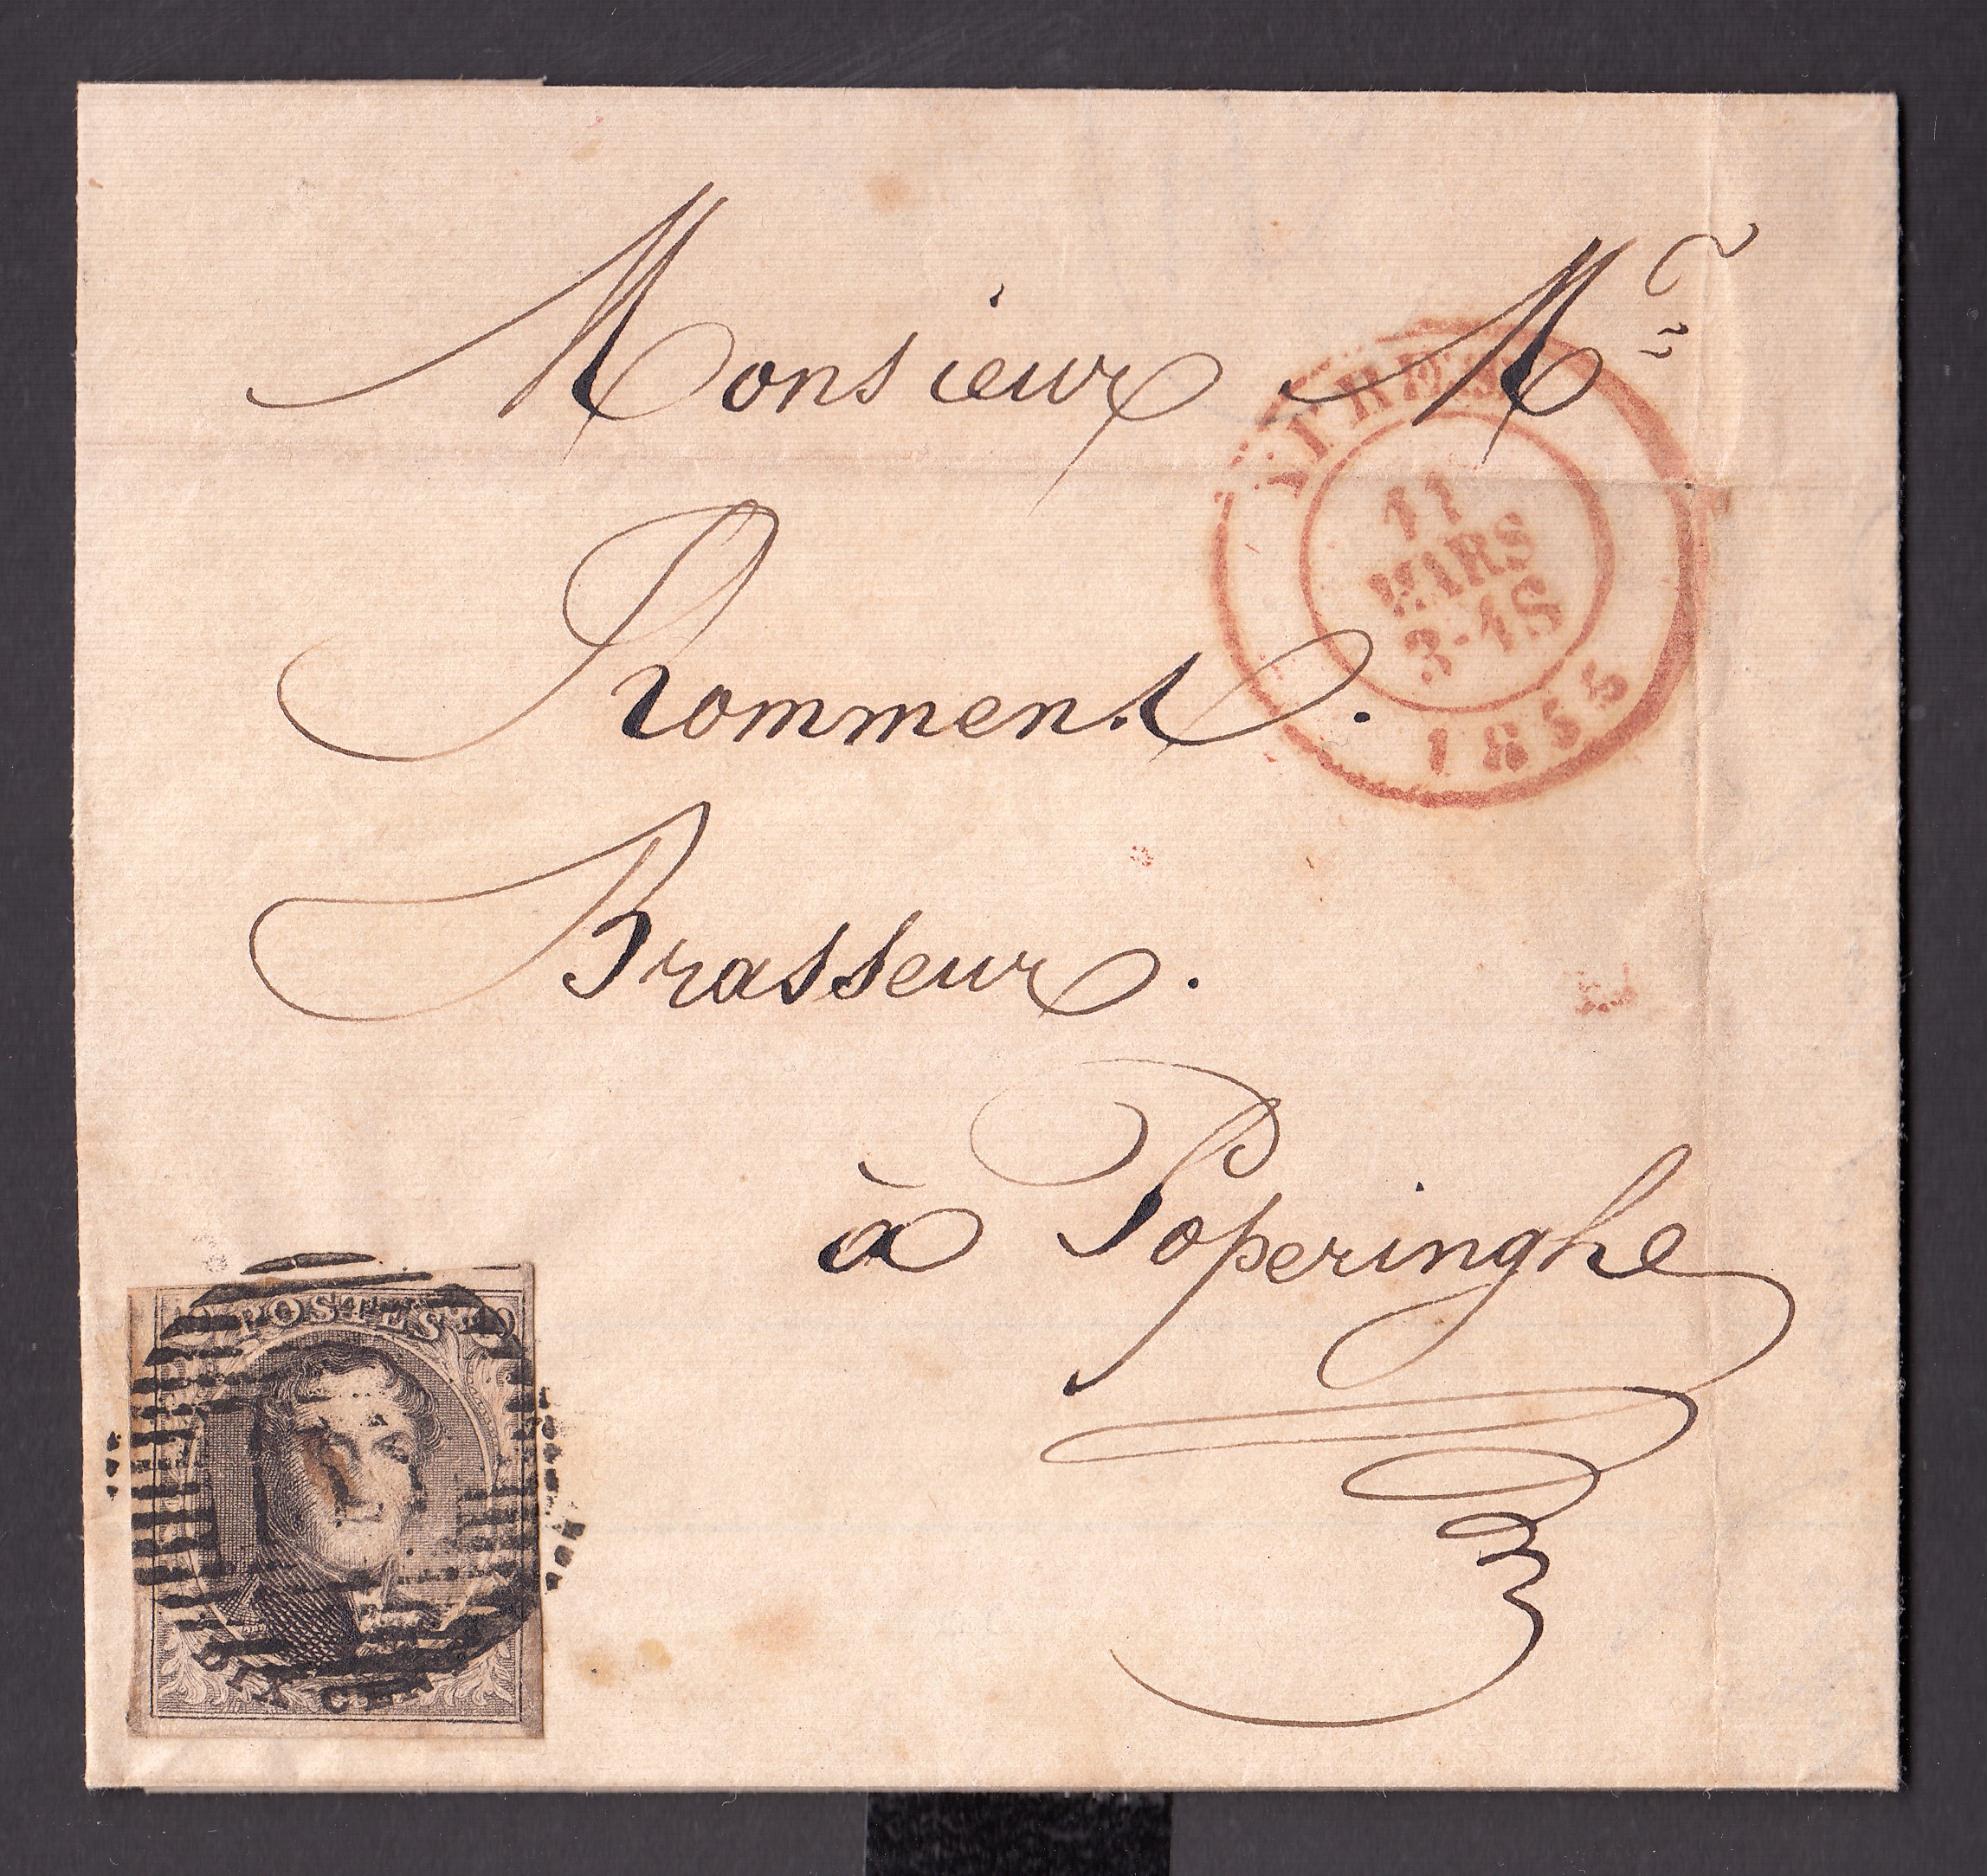 Monsieur Mr
Romment.
Brasseur.
à Poperinghe
YPRES
11
MARS
3-4S
1855
POSTES
DIX CEN